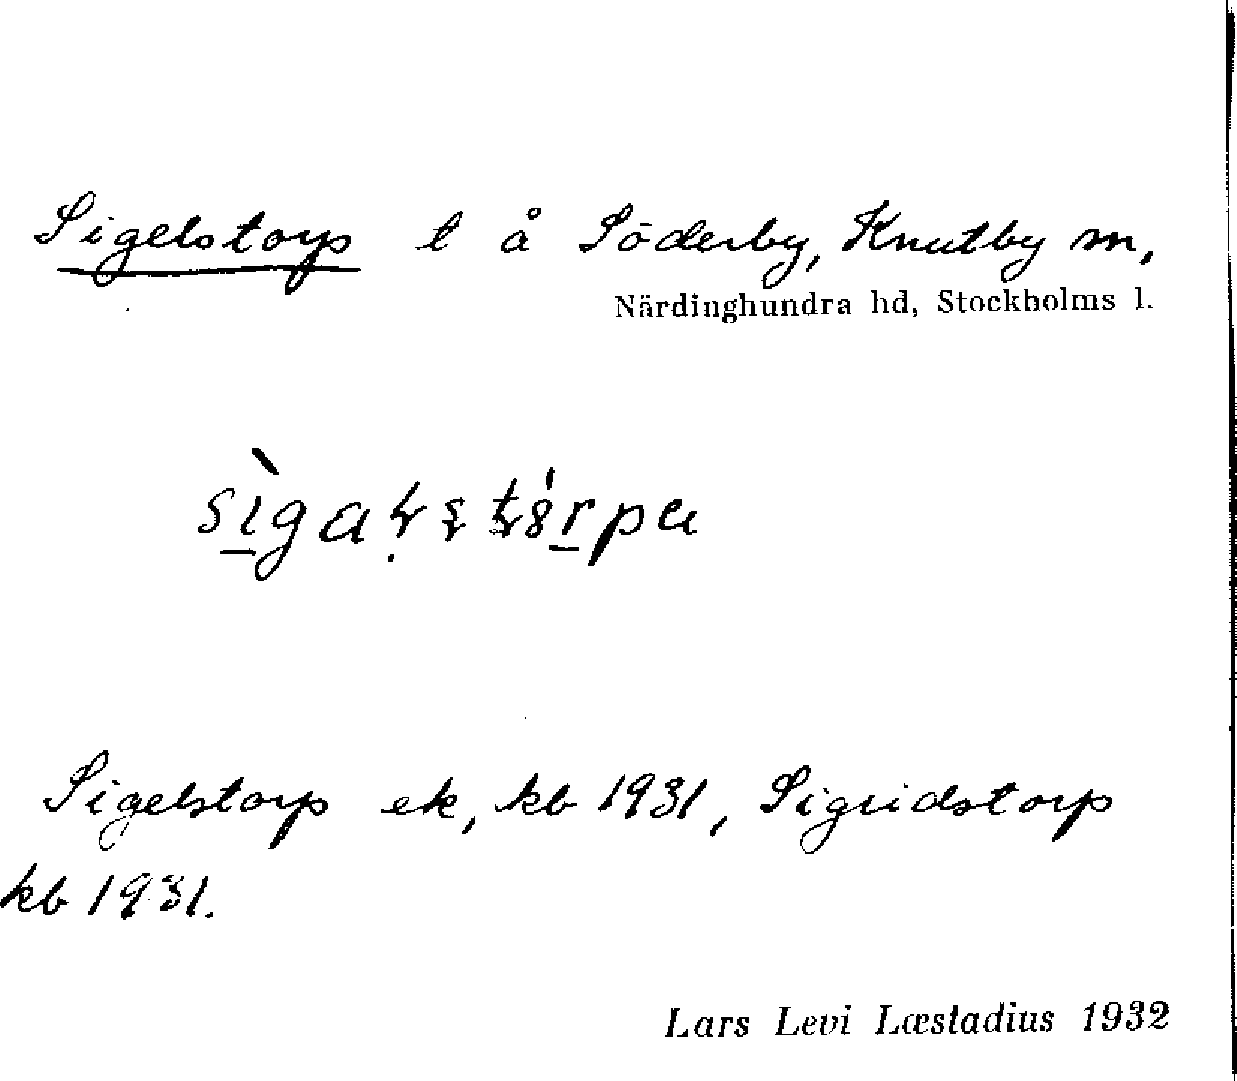 Sigelstorp l å Söderby, Knutby sn,
Närdinghundra hd, Stockholms l.
Sigelstorp ek, kb 1931, Sigridstorp
kb 1931.
Lars Levi Læstadius 1932